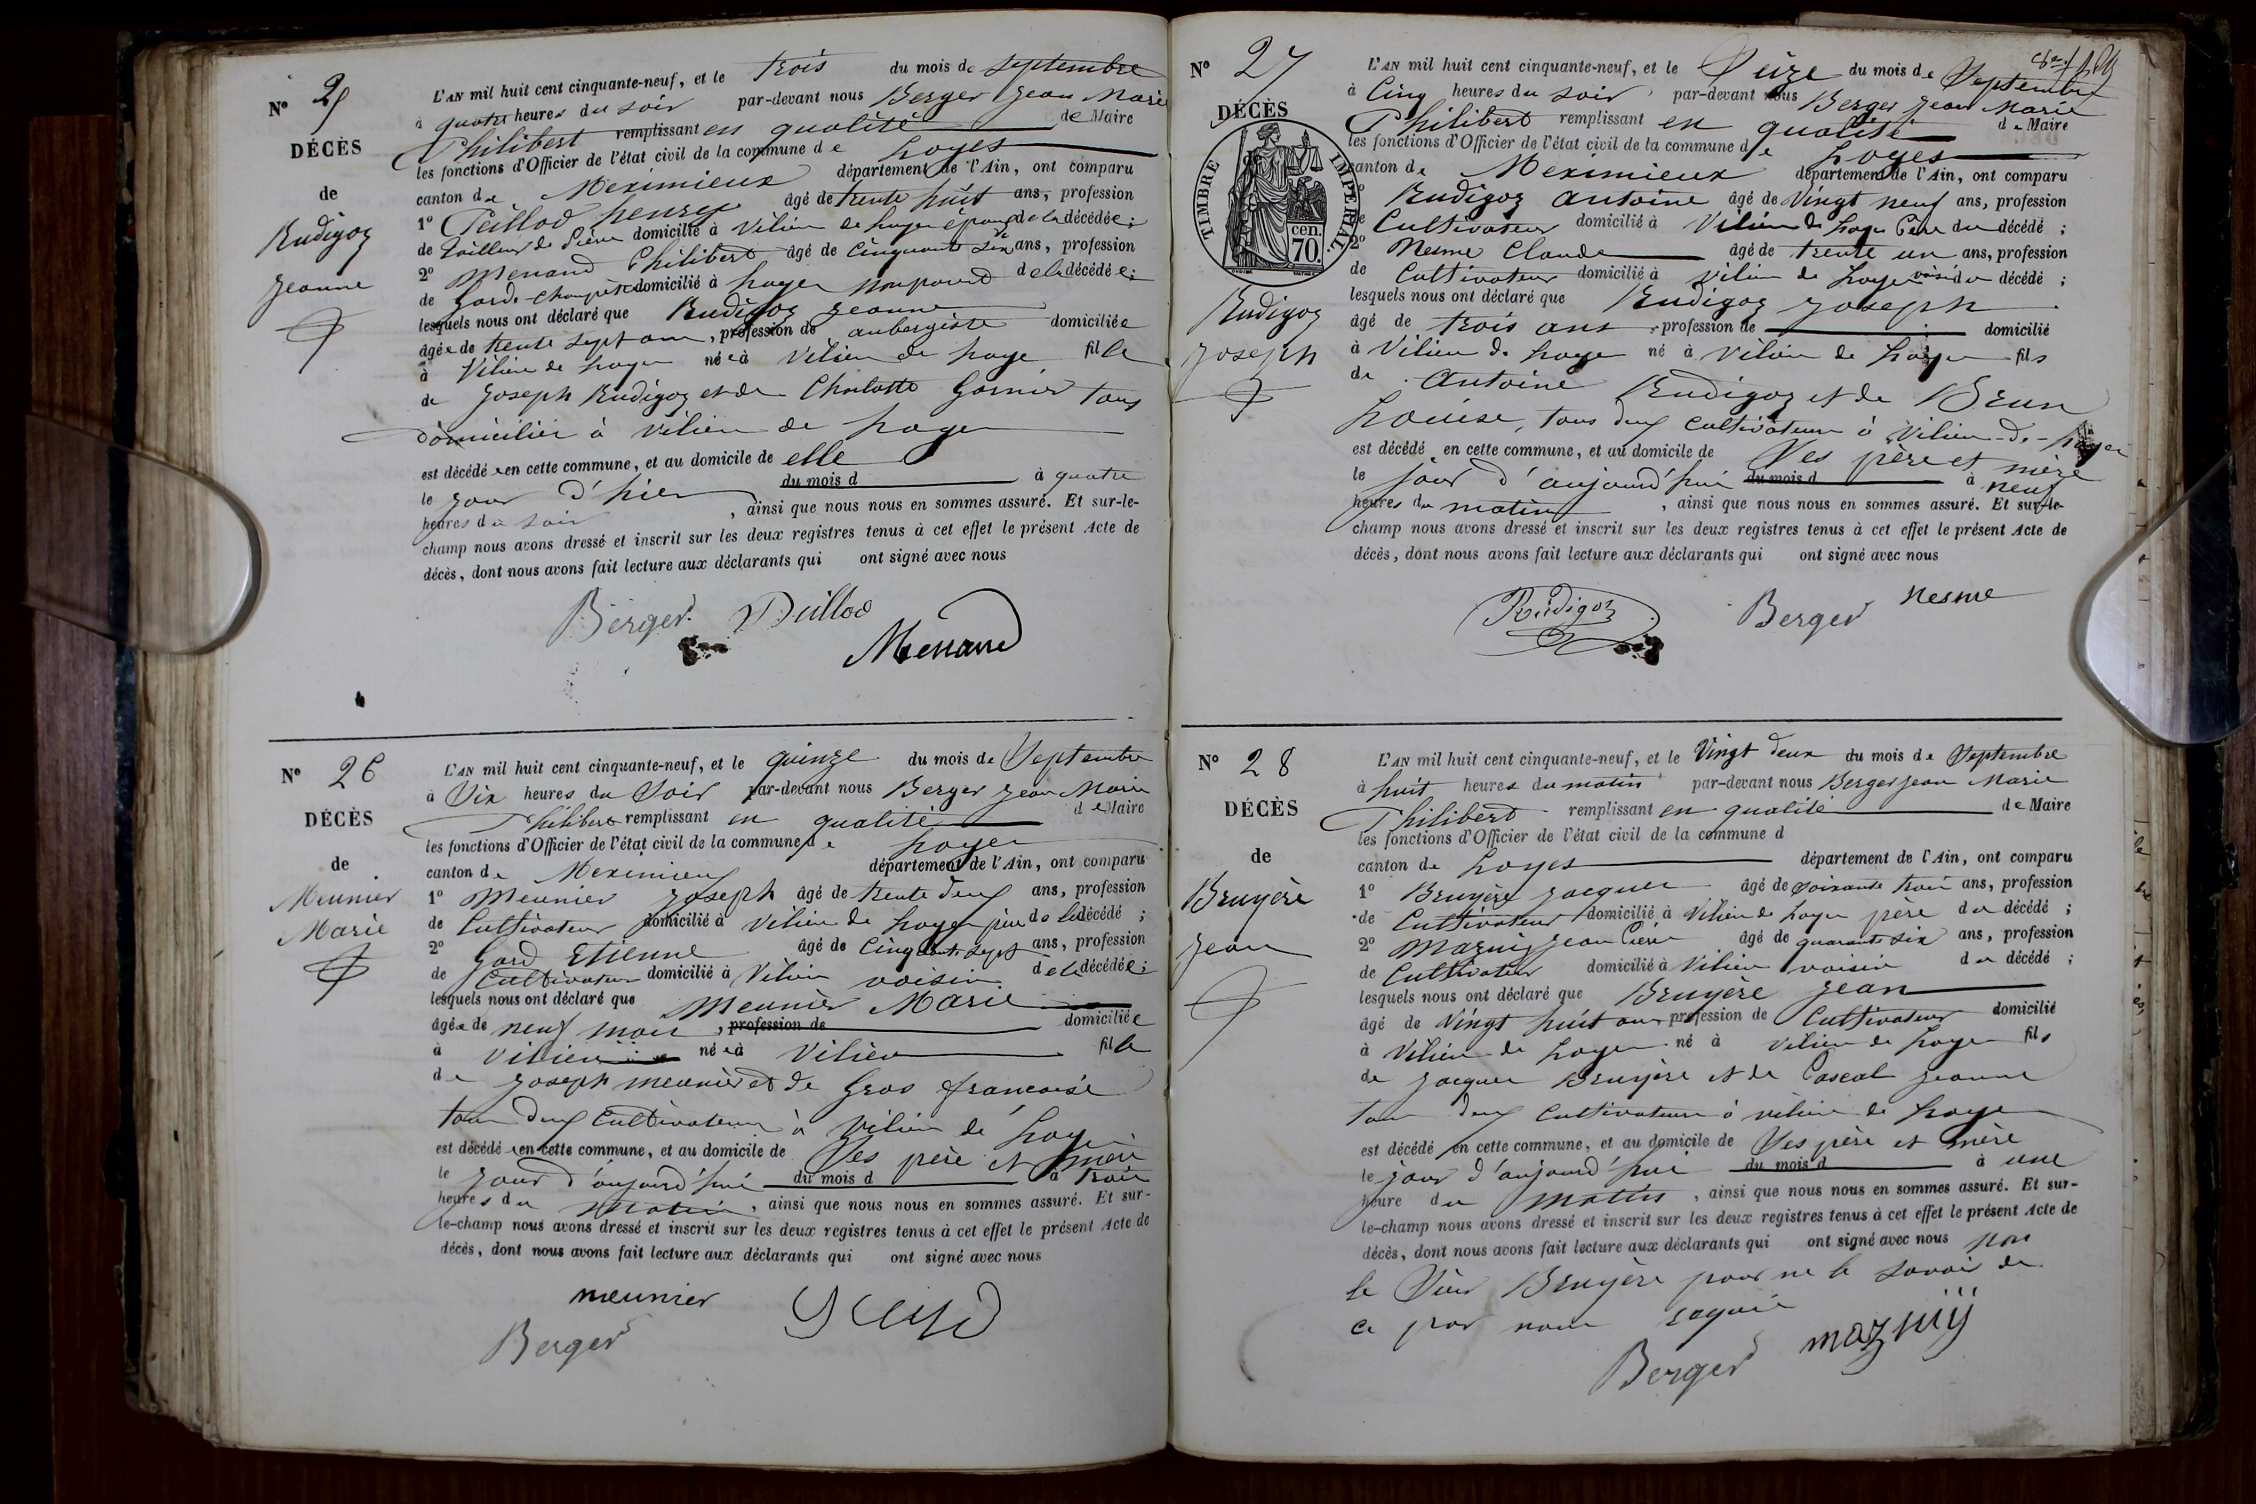 N° 25
DÉCÈS
de
Rudigoz
Jeanne
L'AN mil huit cent cinquante-neuf, et le trois du mois de septembre
à quatre heures du soir par-devant nous Berger Jean Marie
Philibert remplissant en qualité de Maire
les fonctions d'Officier de l'état civil de la commune de Loyes
canton de Meximieux département de l'Ain, ont comparu
1° Peillod henry âgé de trente huit ans, profession
de Tailleur de Pierre domicilié à Vilieu de Loyes époux de la décédée ;
2° Menand Philibert âgé de Cinquante six ans, profession
de Garde-champêtre domicilié à Loyes non parent de la décédée ;
lesquels nous ont déclaré que Rudigoz Jeanne
âgée de trente sept ans, profession de aubergiste domiciliée
à Vilieu de Loyes née à Vilieu de Loye fille
de Joseph Rudigoz et de Charlotte Garnier tous
domiciliés à Vilieu de Loyes
est décédée en cette commune, et au domicile de elle
le jour d'hier du mois d à quatre
heures du soir, ainsi que nous nous en sommes assuré. Et sur-le-
champ nous avons dressé et inscrit sur les deux registres tenus à cet effet le présent Acte de
décès, dont nous avons fait lecture aux déclarants qui ont signé avec nous
Berger Peillod
Menand
N° 26
DÉCÈS
de
Meunier
Marie
L'AN mil huit cent cinquante-neuf, et le quinze du mois de Septembre
à Six heures du Soir par-devant nous Berger Jean Marie
Philibert remplissant en qualité de Maire
les fonctions d'Officier de l'état civil de la commune de Loyes
canton de Meximieux département de l'Ain, ont comparu
1° Meunier Joseph âgé de trente deux ans, profession
de Cultivateur domicilié à Vilieu de Loyes père de la décédé ;
2° Gard Etienne âgé de Cinquante sept ans, profession
de Cultivateur domicilié à Vilieu voisin de la décédée ;
lesquels nous ont déclaré que Meunier Marie
âgée de neuf mois, profession de domiciliée
à Vilieu née à Vilieu fille
de Joseph Meunier et de Gros francoise
tous deux Cultivateurs à Vilieu de Loyes
est décédée en cette commune, et au domicile de Ses père et mère
le jour d'aujourd'hui du mois d à trois
heures du matin, ainsi que nous nous en sommes assuré. Et sur-
le-champ nous avons dressé et inscrit sur les deux registres tenus à cet effet le présent Acte de
décès, dont nous avons fait lecture aux déclarants qui ont signé avec nous
meunier Gard
Berger
N° 27
DÉCÈS
TIMBRE IMPÉRIAL.
cen.
70.
Rudigoz
Joseph
L'AN mil huit cent cinquante-neuf, et le Seize du mois de Septembre
à Cinq heures du soir par-devant nous Berger Jean Marie
Philibert remplissant en qualité de Maire
les fonctions d'Officier de l'état civil de la commune de Loyes
canton de Meximieux département de l'Ain, ont comparu
Rudigoz Antoine âgé de Vingt neuf ans, profession
Cultivateur domicilié à Vilieu de Loyes Père du décédé ;
2° Nesme Claude âgé de trente un ans, profession
de Cultivateur domicilié à Vilieu de Loyes voisin du décédé ;
lesquels nous ont déclaré que Rudigoz Joseph
âgé de trois ans, profession de domicilié
à Vilieu de Loyes né à Vilieu de Loyes fils
de Antoine Rudigoz et de Brun
Louise, tous deux Cultivateurs à Vilieu-de-Loyes
est décédé en cette commune, et au domicile de Ses père et mère
le jour d'aujourd'hui du mois d à neuf
heures du matin, ainsi que nous nous en sommes assuré. Et sur-le-
champ nous avons dressé et inscrit sur les deux registres tenus à cet effet le présent Acte de
décès, dont nous avons fait lecture aux déclarants qui ont signé avec nous
Rudigoz Berger Nesme
N° 28
DÉCÈS
de
Bruyère
Jean
L'AN mil huit cent cinquante-neuf, et le Vingt deux du mois de Septembre
à huit heures du matin par-devant nous Berger Jean Marie
Philibert remplissant en qualité de Maire
les fonctions d'Officier de l'état civil de la commune d
canton de Loyes département de l'Ain, ont comparu
1° Bruyère Jacques âgé de soixante trois ans, profession
de Cultivateur domicilié à Vilieu de Loyes père du décédé ;
2° Mazuy Jean Pierre âgé de quarante six ans, profession
de Cultivateur domicilié à Vilieu voisin du décédé ;
lesquels nous ont déclaré que Bruyère Jean
âgé de Vingt huit ans profession de Cultivateur domicilié
à Vilieu de Loyes né à Vilieu de Loyes fils
de Jacques Bruyère et de Pascal Jeanne
tous deux Cultivateurs à Vilieu de Loyes
est décédé en cette commune, et au domicile de Ses père et mère
le jour d'aujourd'hui du mois d à une
heure du matin, ainsi que nous nous en sommes assuré. Et sur-
le-champ nous avons dressé et inscrit sur les deux registres tenus à cet effet le présent Acte de
décès, dont nous avons fait lecture aux déclarants qui ont signé avec nous non
le Sieur Bruyère pour ne le savoir de
ce par nous requis
Berger mazuÿ